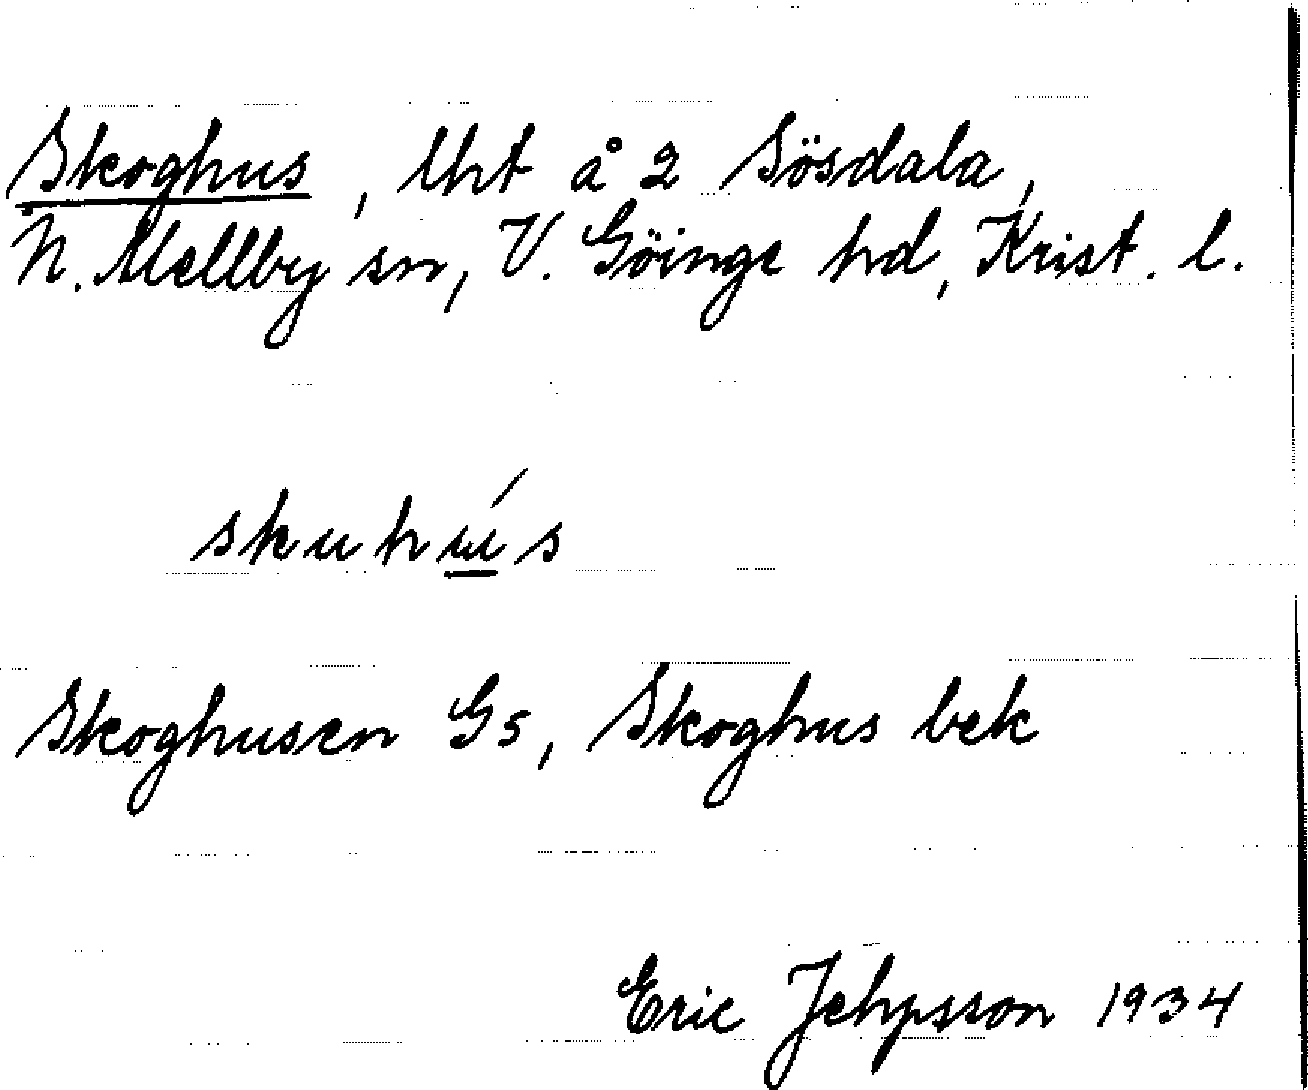 Skoghus, lht å 2 Sösdala,
N. Mellby sn, V. Göinge hd, Krist. l.
skuhu̲ís
Skoghusen Gs, Skoghus bek
Eric Jehpsson 1934